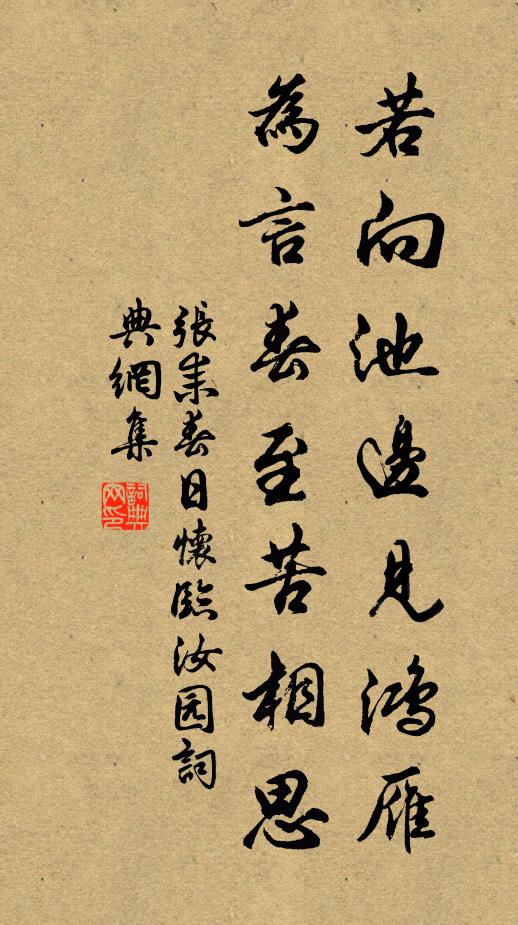 若向池邊見鴻雁
為言春至苦相思
張耒春日懷臨汝园詞
典網集
詞典
网印